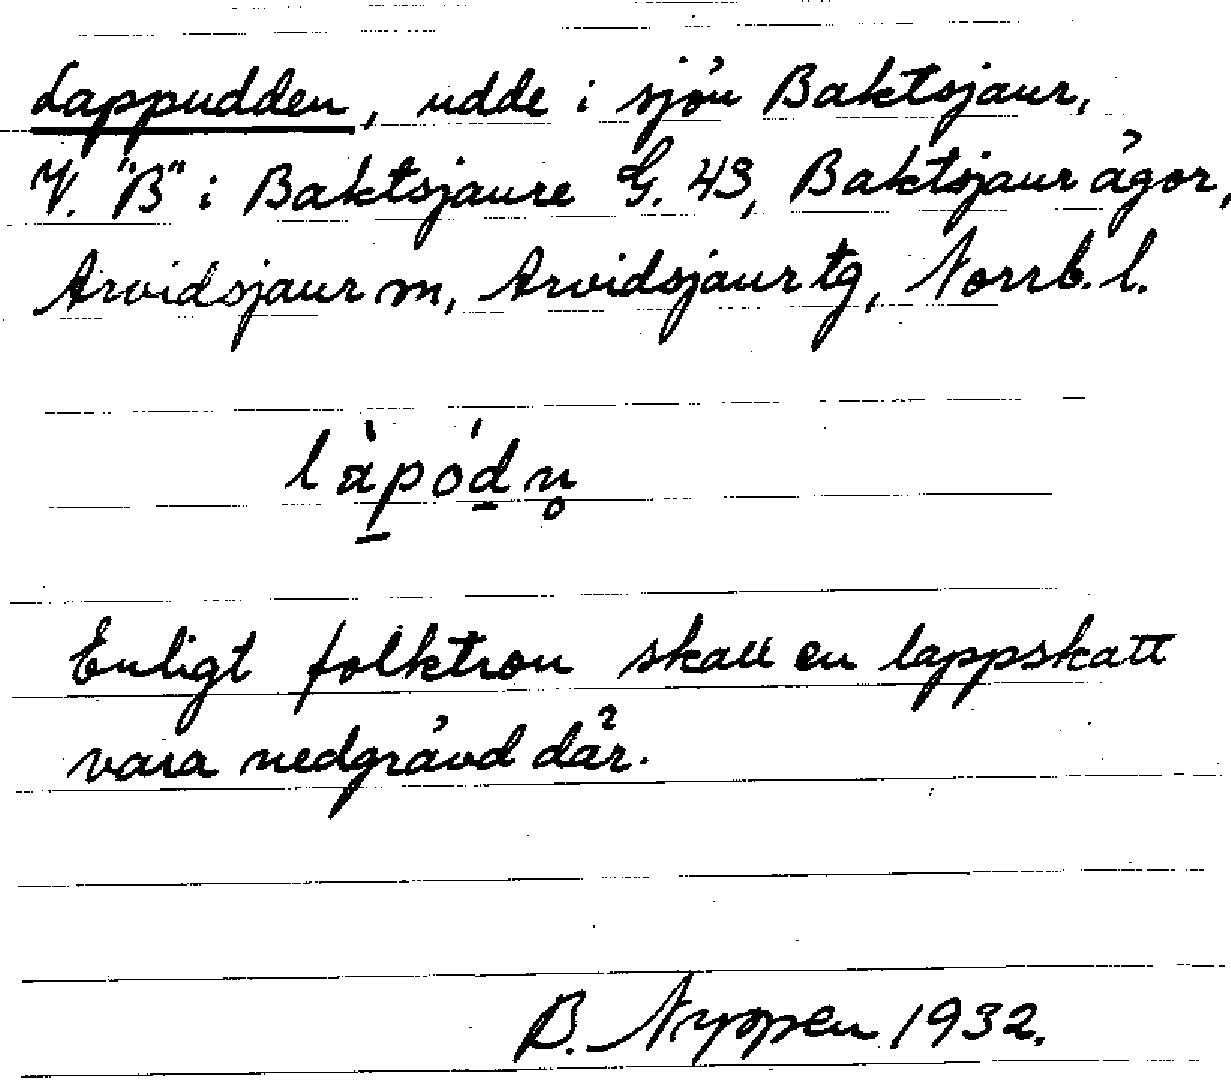 Lappudden, udde i sjön Baktsjaur,
V. "B" i Baktsjaure G. 43, Baktsjaur ägor,
Arvidsjaur m, Arvidsjaur tg, Norrb. l.
làpódn̥
Enligt folktron skall en lappskatt
vara nedgrävd där.
B. Nyppen 1932.